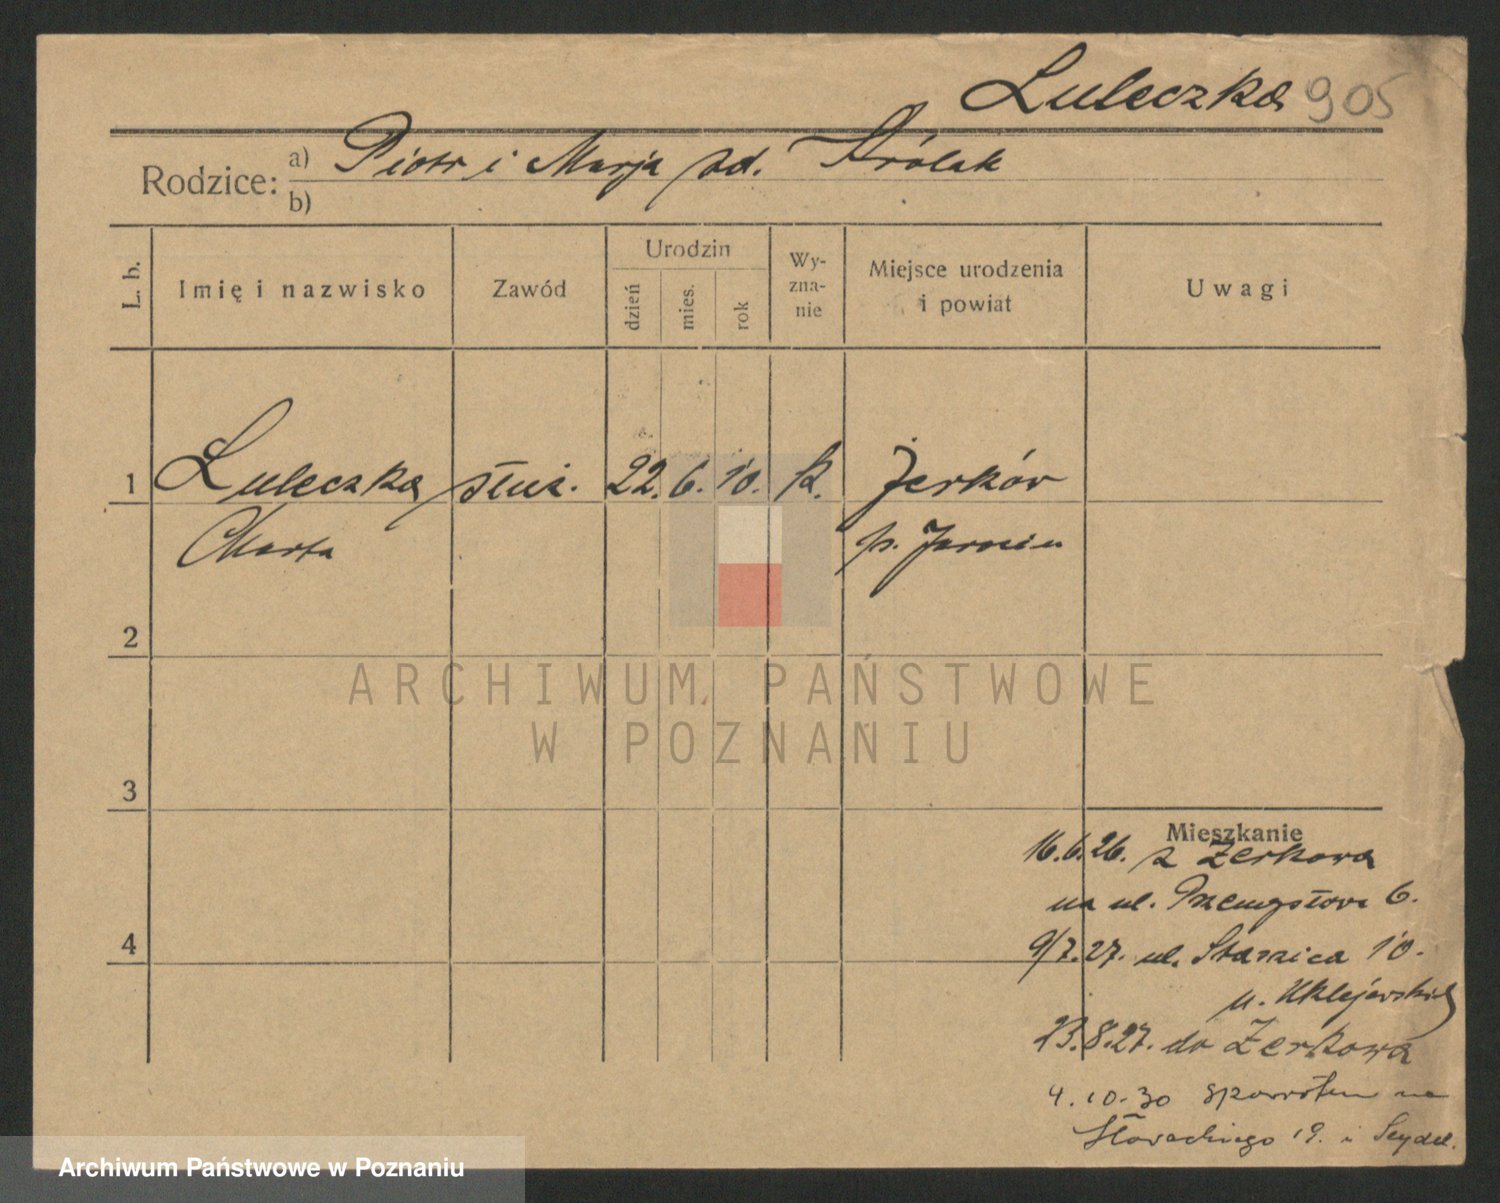 Luleczka 905
Rodzice: a) Piotr i Marja zd. Królak
b)
L. b.
Imię i nazwisko
Zawód
Urodzin
dzień
mies.
rok
Wy-
zna-
nie
Miejsce urodzenia
i powiat
Uwagi
1 Luleczka służ. 22. 6. 10. k. Żerków
Marta p. Jarocin
2
3
4
Mieszkanie
16.6.26. z Żerkowa
na ul. Przemysłowa 6.
9/7.27. ul. Strzelecka 10.
u.
23.8.27. do Żerkowa
4.10.30 spowrotem na
Słowackiego 19. u Seydel.
ARCHIWUM PAŃSTWOWE
W POZNANIU
Archiwum Państwowe w Poznaniu